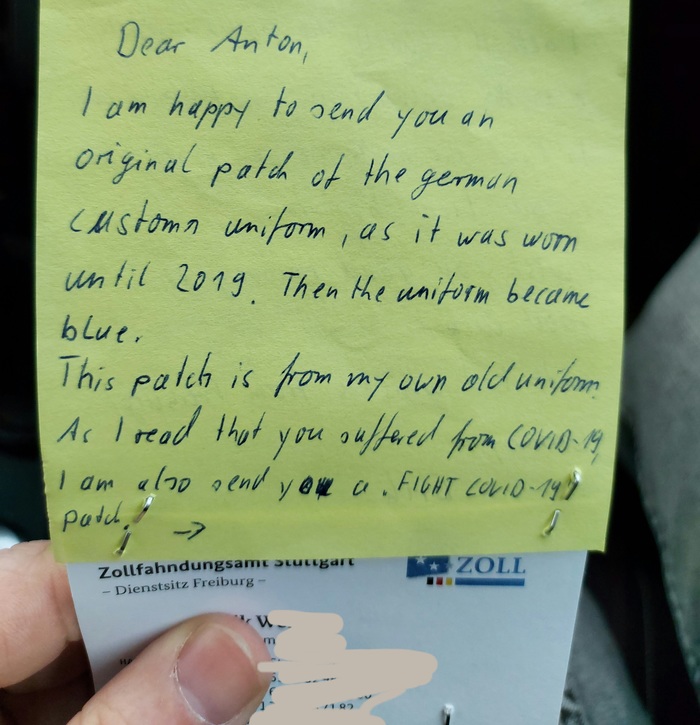 Dear Anton,
I am happy to send you an
original patch of the german
customs uniform, as it was worn
until 2019. Then the uniform became
blue.
This patch is from my own old uniform.
As I read that you suffered from COVID-19,
I am also send you a "FIGHT COVID-19"
patch. →
Zollfahndungsamt Stuttgart
– Dienstsitz Freiburg –
ZOLL